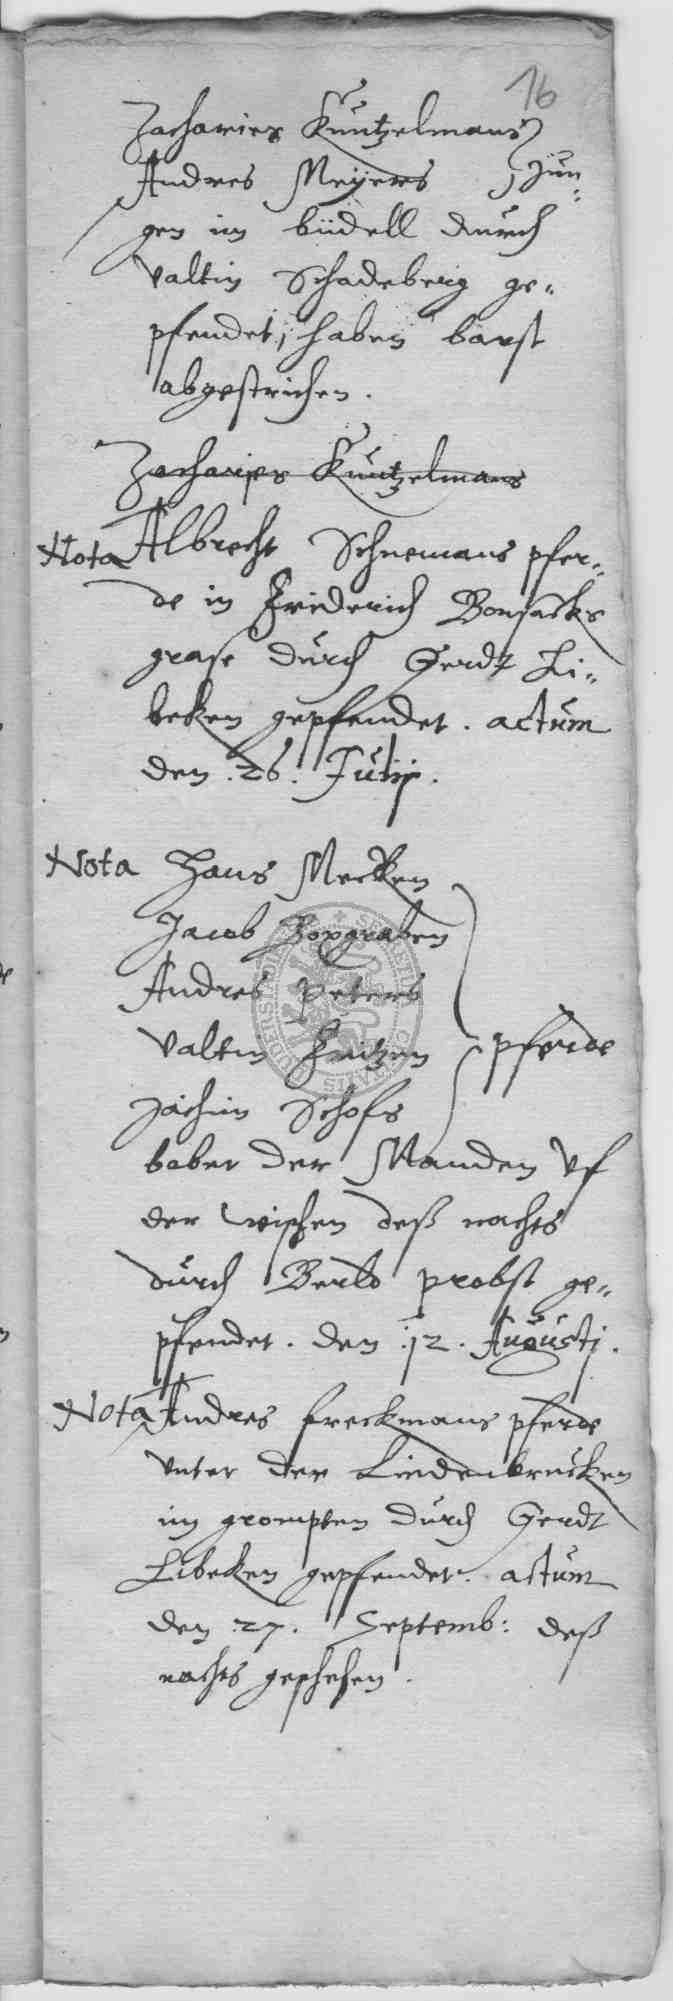 16
Zacharies Kuntzelmans
Andres Meyers Jun-
gen im büdell durch
Valtin Schadeberg ge-
pfendet, haben barst
abgestrichen.
Zacharies Kuntzelmans
Nota Albrecht Schnemans pfer-
de in Friderich Bonsacks
grase durch Gerdt Li-
beken gepfendet. actum
den .26. Julij.
Nota Hans Mecken
Jacob Boxgraben
Andres Peters
Valtin Fritzen pferde
Jochim Schofs
bober der Manden vf
der wischen deß nachts
durch Berld probst ge-
pfendet. den .12. Augusti.
Nota Andres freckmans pferde
vnter der Lindenbrucken
im grompten durch Gerdt
Libeken gepfendet. actum
den .27. Septemb: deß
nachts geschehen.